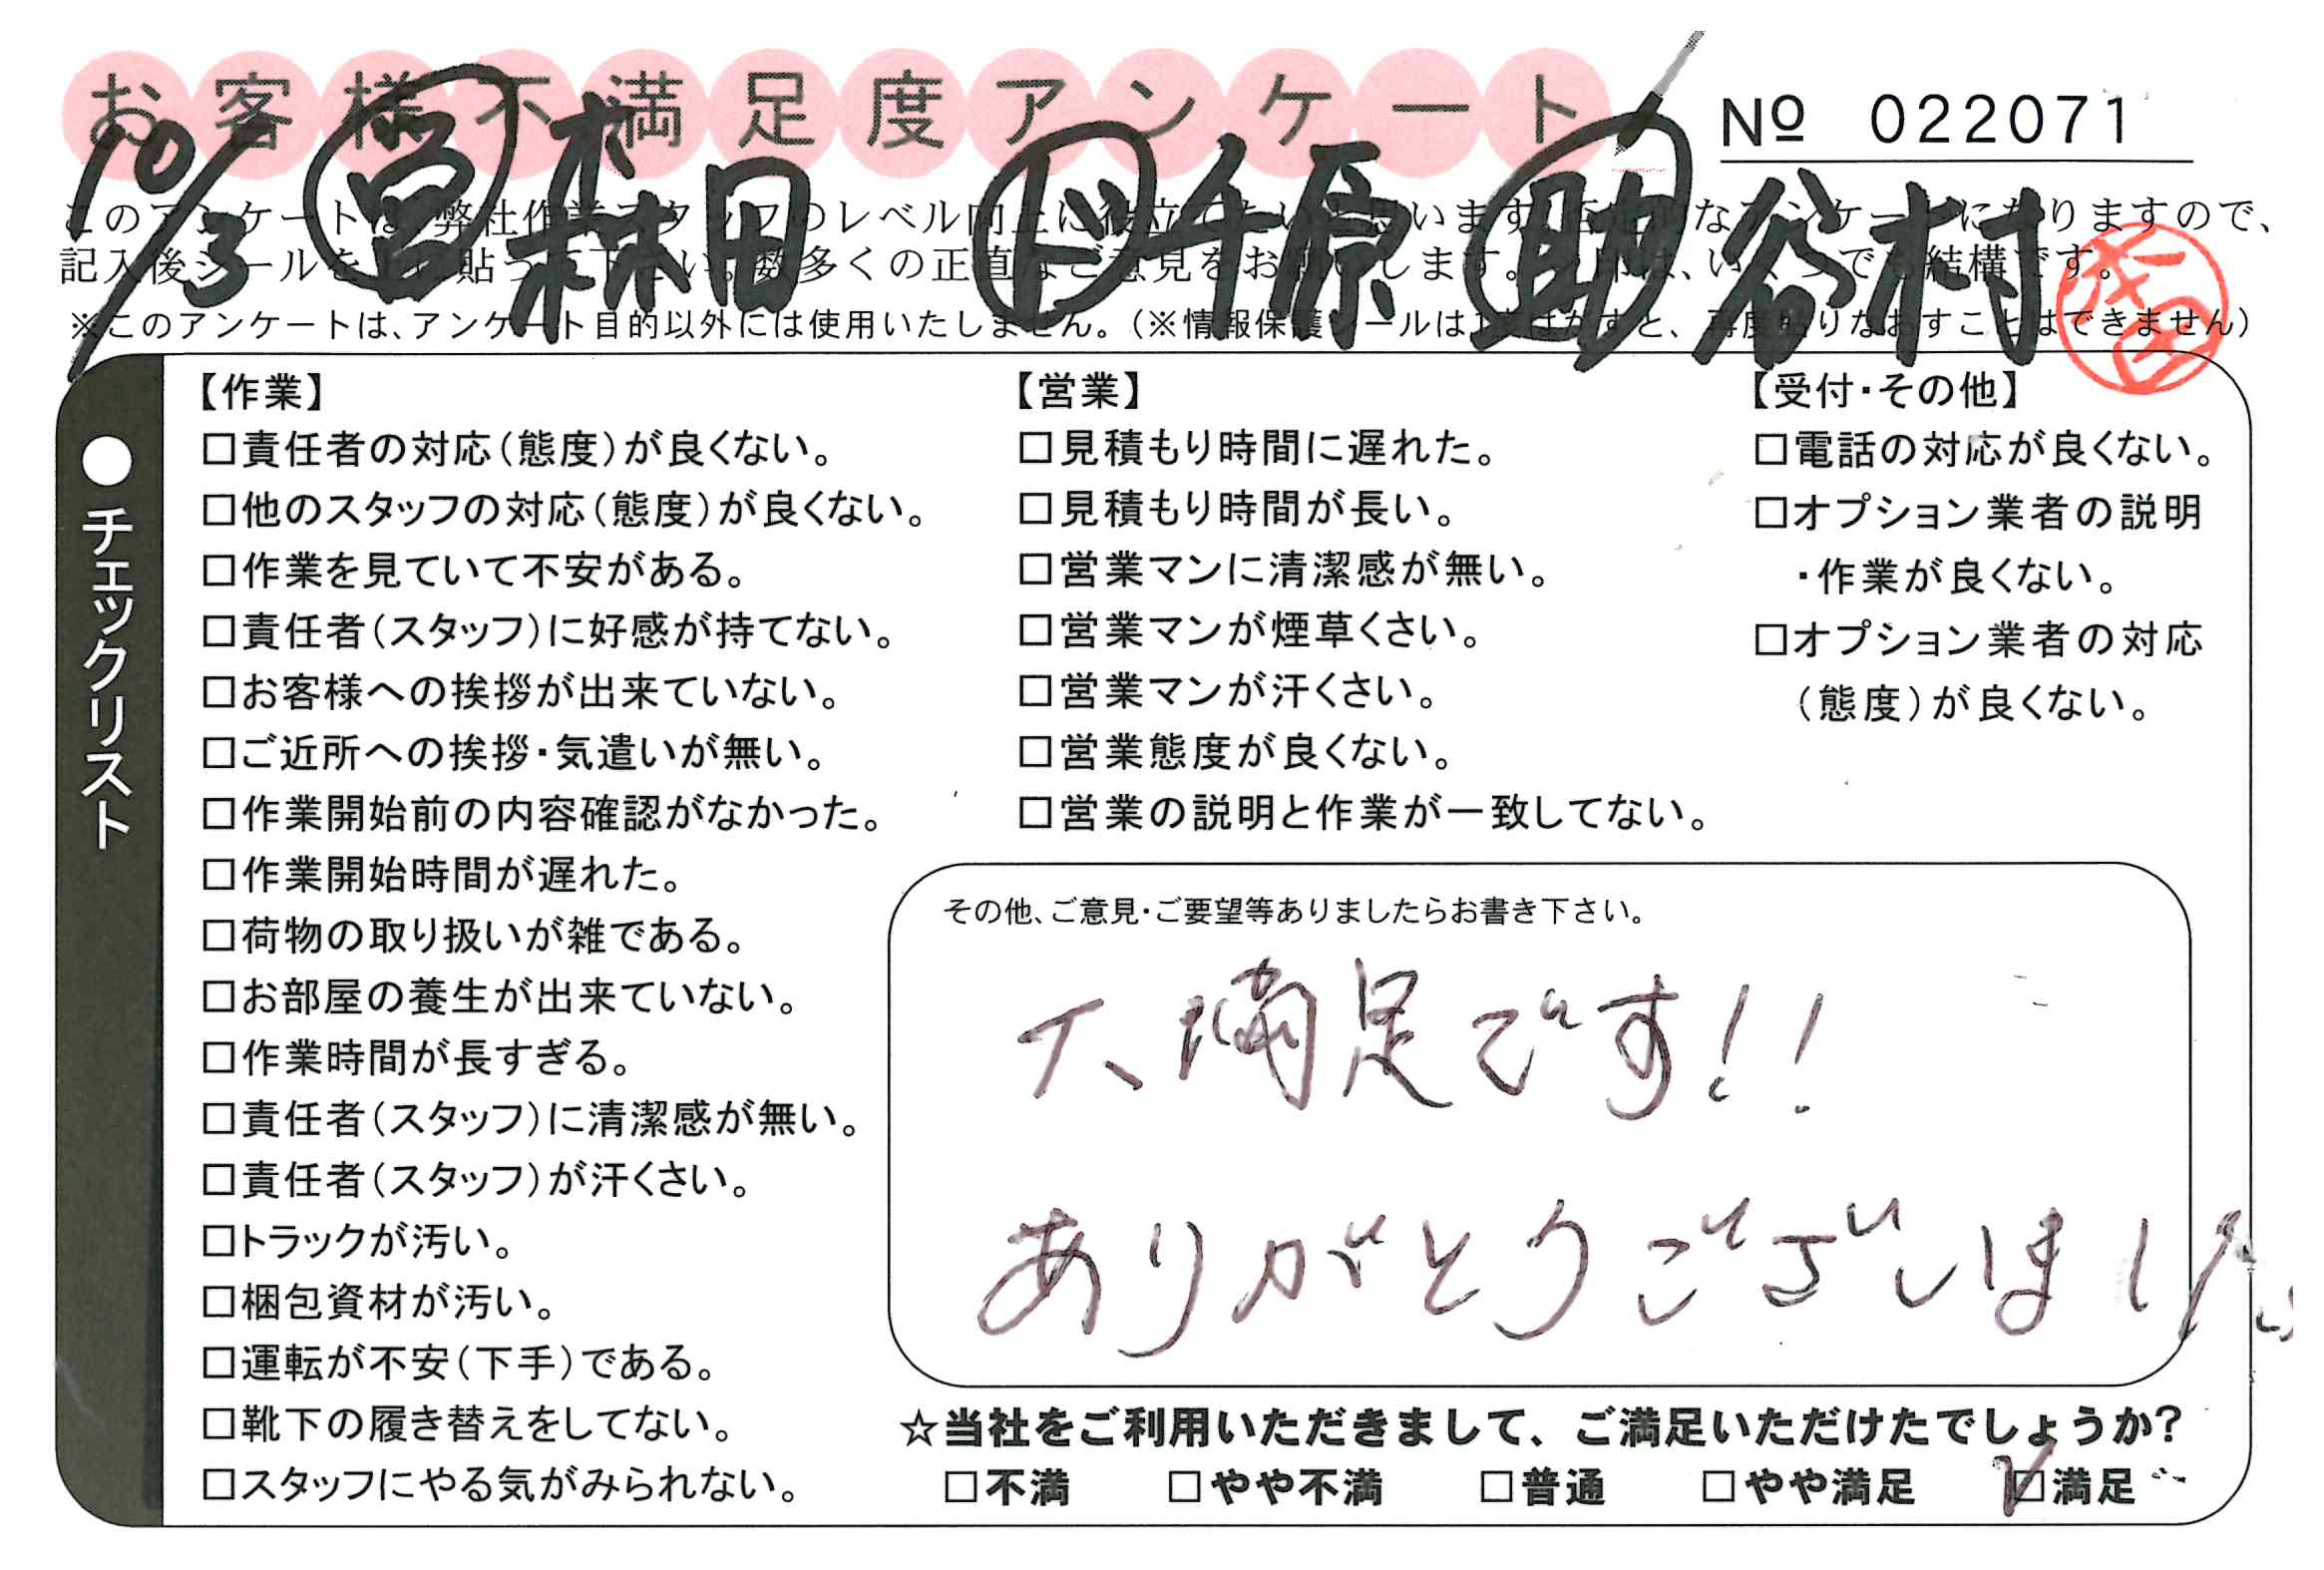 お客様不満足度アンケート
No 022071
10/3 営 森田 ド 千原 助 谷村
このアンケートは、弊社作業スタッフのレベル向上に役立てたいと思います。否定的なアンケートになりますので、
記入後シールを上に貼って下さい。数多くの正直なご意見をお願いします。印は、いくつでも結構です。
※このアンケートは、アンケート目的以外には使用いたしません。(※情報保護シールは1度はがすと、再度貼りなおすことはできません)
●チェックリスト
【作業】
□責任者の対応(態度)が良くない。
□他のスタッフの対応(態度)が良くない。
□作業を見ていて不安がある。
□責任者(スタッフ)に好感が持てない。
□お客様への挨拶が出来ていない。
□ご近所への挨拶・気遣いが無い。
□作業開始前の内容確認がなかった。
□作業開始時間が遅れた。
□荷物の取り扱いが雑である。
□お部屋の養生が出来ていない。
□作業時間が長すぎる。
□責任者(スタッフ)に清潔感が無い。
□責任者(スタッフ)が汗くさい。
□トラックが汚い。
□梱包資材が汚い。
□運転が不安(下手)である。
□靴下の履き替えをしてない。
□スタッフにやる気がみられない。
【営業】
□見積もり時間に遅れた。
□見積もり時間が長い。
□営業マンに清潔感が無い。
□営業マンが煙草くさい。
□営業マンが汗くさい。
□営業態度が良くない。
□営業の説明と作業が一致してない。
【受付・その他】
□電話の対応が良くない。
□オプション業者の説明
・作業が良くない。
□オプション業者の対応
(態度)が良くない。
その他、ご意見・ご要望等ありましたらお書き下さい。
大満足です!!
ありがとうございました
☆当社をご利用いただきまして、ご満足いただけたでしょうか?
□不満 □やや不満 □普通 □やや満足 ☑満足